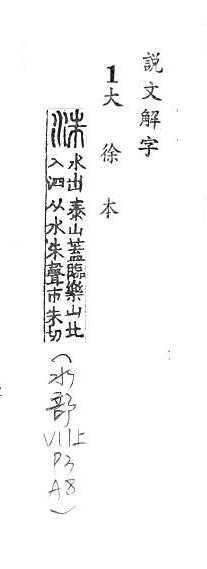 説文解字
1大徐本
洙 水出泰山蓋臨樂山北
入泗从水朱聲市朱切
(水部
VII上
P3
A8)